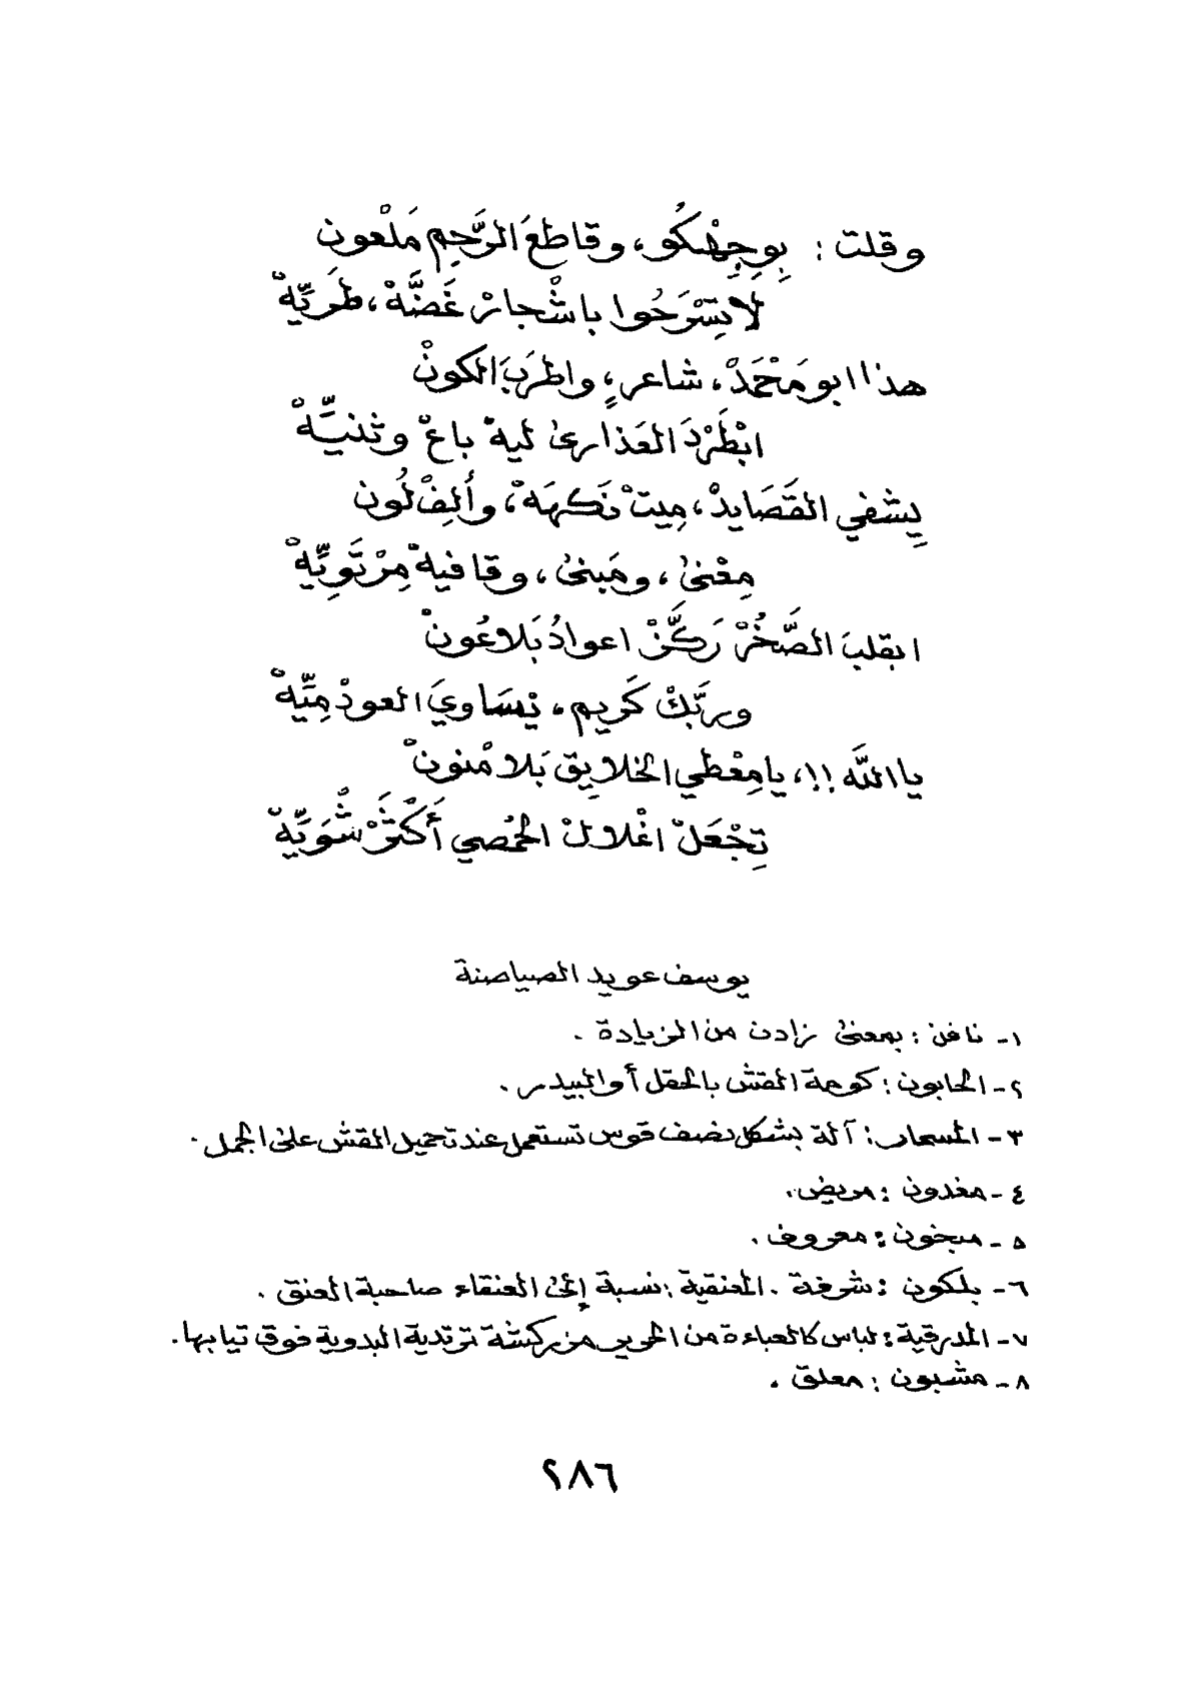 وقلت : بِوِجِهْكُو ، وقاطعَ الرَّحِمِ مَلْعون
لَا تِسْرَحُوا باشْجارْ غَضَّهْ ، طَرَيِّهْ
هذا ابو مَحْمَدْ ، شاعرٍ ، واطرَبَ الكونْ
ابْطَرْدَ العَذارىٰ ليهْ باعْ وثنيِّهْ
يِشفي القَصَايدْ ، مِيتْ نَكهَهْ ، وأَلِفْ لُون
مِعْنىٰ ، ومَبنىٰ ، وقافيهْ مِرْتَوِيِّهْ
ابقلبَ الصَّخُرْ رَكَّزْ اعوادُ بَلاعُونْ
وربَّكْ كَريم ، يْسَاويَ العودْ مِيِّهْ
يا اللَّه !! ، يا مِعْطي الخلايِق بَلا مْنونْ
تِجْعَلْ اغْلالْ الحُمْصي أَكْثَرْ شْوَيِّهْ
يوسف عويد الصياصنة
١- نافن : بمعنىٰ زادن من الزيادة .
٢- الحابون : كومة القش بالحقل أو البيدر .
٣- المسحار : آلة بشكل نصف قوس تستعمل عند تحميل القش علىٰ الجمل .
٤- مغدون : مريض .
٥- مبخون : معروف .
٦- بلكون : شرفة . العنقية : نسبة إلىٰ العنقاء صاحبة العنق .
٧- المدرقية : لباس كالعباءة من الحرير مزركشة ترتدية البدوية فوق ثيابها .
٨- مشبون : معلق .
٢٨٦